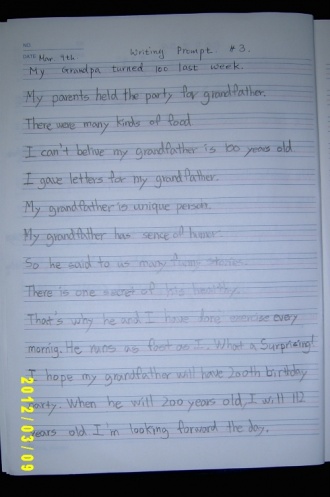 NO.
DATE Mar 9th Writing Prompt #3.
My Grandpa turned 100 last week.
My parents held the party for grandfather.
There were many kinds of food
I can't belive my grandfather is 100 years old
I gave letters for my grandfather.
My grandfather is unique person.
My grandfather has sence of humor.
So he said to us many funny stories.
There is one secret of his healthy.
That's why he and I have done exercise every
mornig. He runs as fast as I. What a surprising!
I hope my grandfather will have 200th birthday
party. When he will 200 years old, I will 112
years old I'm looking forward the day.
2012/03/09